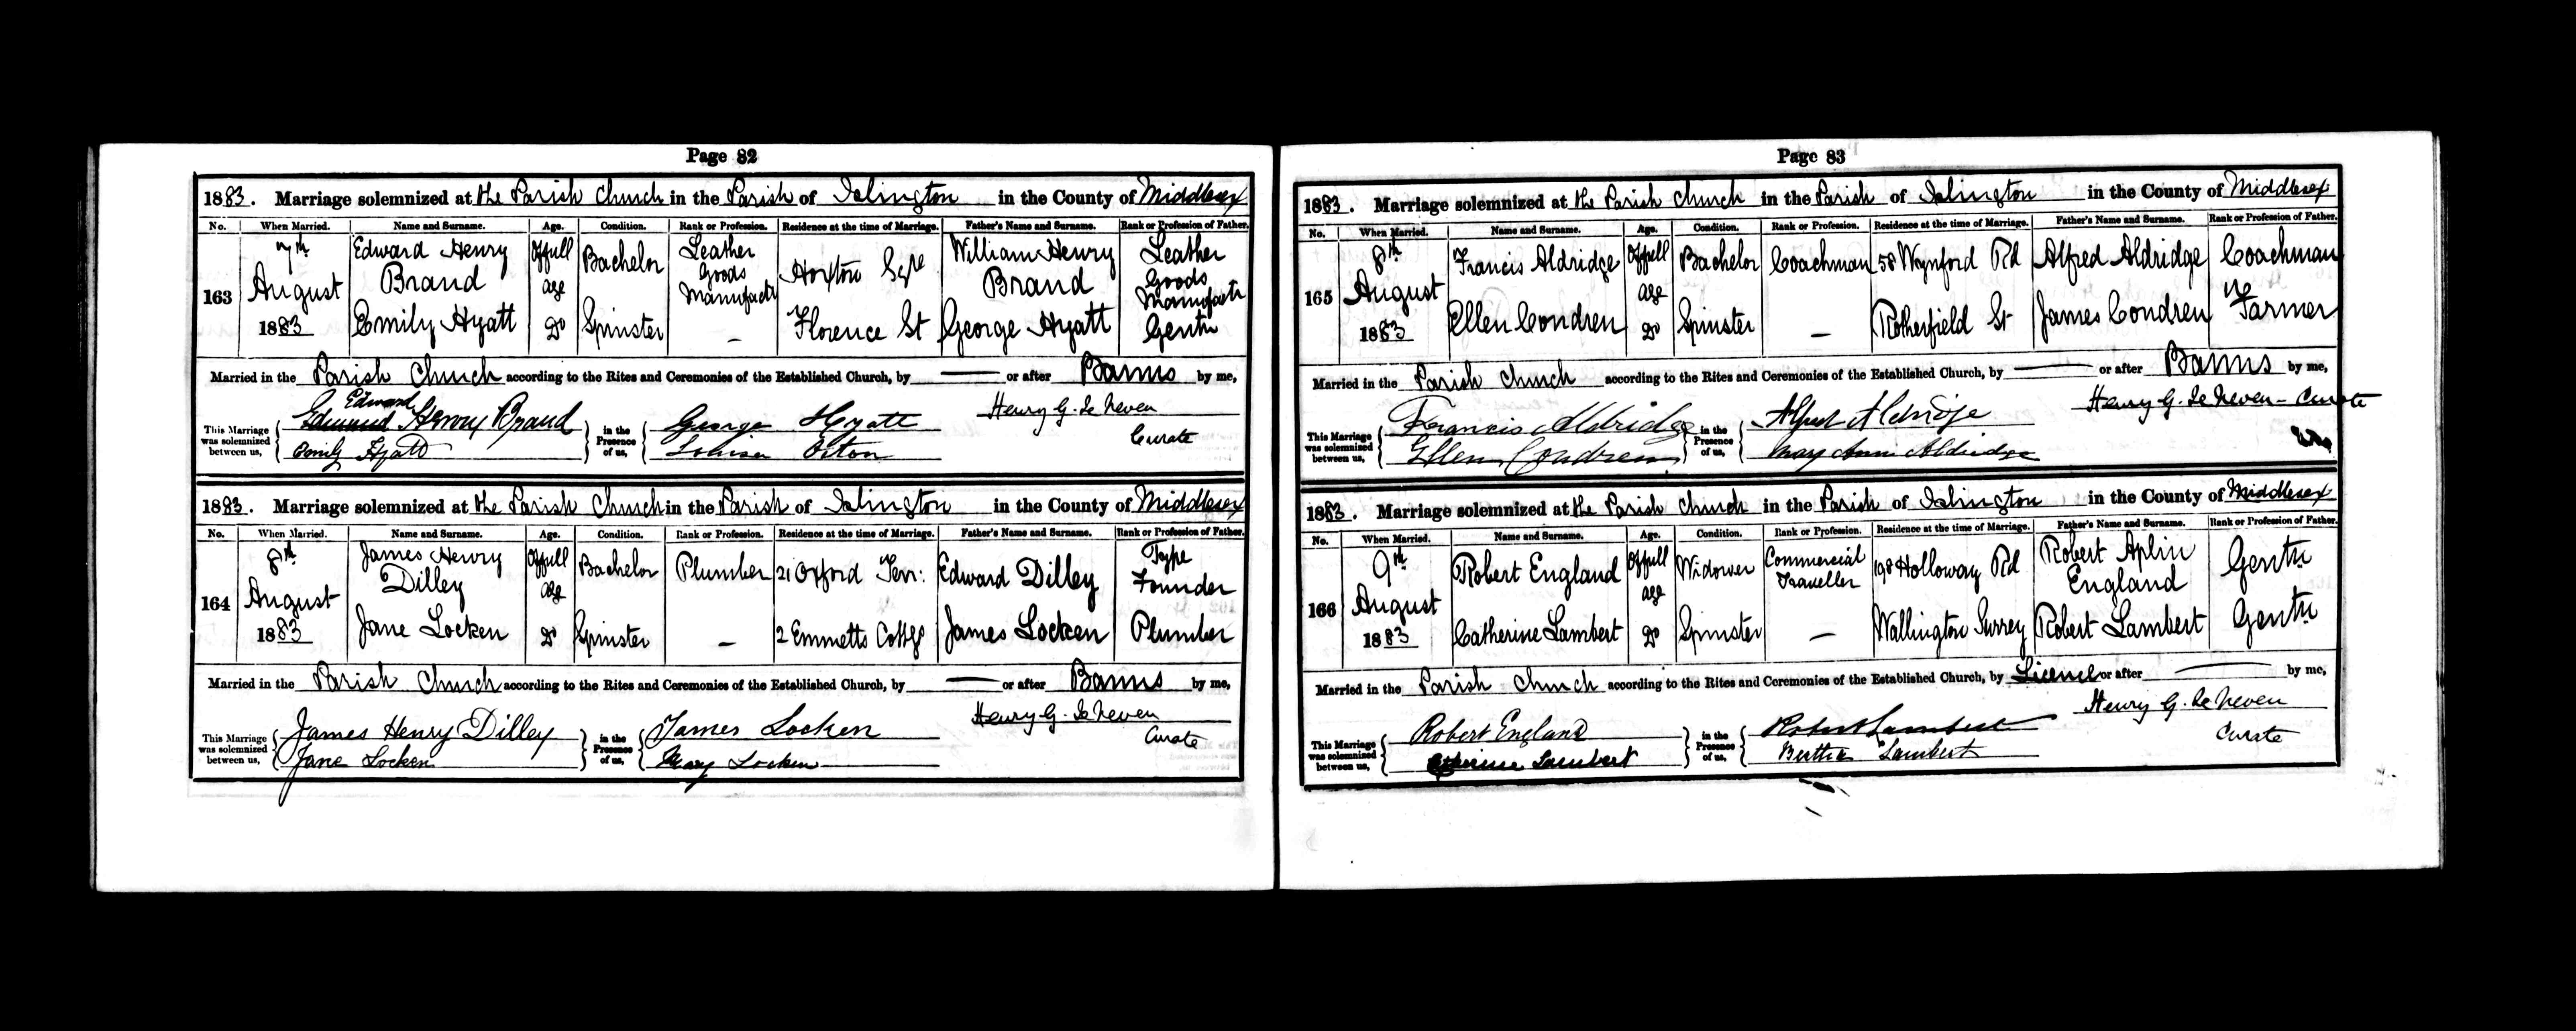 Page 82
1883. Marriage solemnized at the Parish Church in the Parish of Islington in the County of Middlesex
No. When Married. Name and Surname. Age. Condition. Rank or Profession. Residence at the time of Marriage. Father's Name and Surname. Rank or Profession of Father.
163 7th August 1883 Edward Henry Brand Of full age Bachelor Leather Goods Manufactr Hoxton Sqre William Henry Brand Leather Goods Manufactr
Emily Hyatt Do Spinster — Florence St George Hyatt Gentn
Married in the Parish Church according to the Rites and Ceremonies of the Established Church, by — or after Banns by me,
This Marriage was solemnized between us, Edward Henry Brand Emily Hyatt in the Presence of us, George Hyatt Louisa Orton Henry G. Le Neven Curate
1883. Marriage solemnized at the Parish Church in the Parish of Islington in the County of Middlesex
No. When Married. Name and Surname. Age. Condition. Rank or Profession. Residence at the time of Marriage. Father's Name and Surname. Rank or Profession of Father.
164 8th August 1883 James Henry Dilley Of full age Bachelor Plumber 21 Oxford Terr: Edward Dilley Type Founder
Jane Locken Do Spinster — 2 Emmetts Cottgs James Locken Plumber
Married in the Parish Church according to the Rites and Ceremonies of the Established Church, by — or after Banns by me,
This Marriage was solemnized between us, James Henry Dilley Jane Locken in the Presence of us, James Locken Mary Locken Henry G. Le Neven Curate
Page 83
1883. Marriage solemnized at the Parish Church in the Parish of Islington in the County of Middlesex
No. When Married. Name and Surname. Age. Condition. Rank or Profession. Residence at the time of Marriage. Father's Name and Surname. Rank or Profession of Father.
165 8th August 1883 Francis Aldridge Of full age Bachelor Coachman 58 Wynford Rd Alfred Aldridge Coachman
Ellen Condren Do Spinster — Rotherfield St James Condren Farmer
Married in the Parish Church according to the Rites and Ceremonies of the Established Church, by — or after Banns by me,
This Marriage was solemnized between us, Francis Aldridge Ellen Condren in the Presence of us, Alfred Aldridge Mary Ann Aldridge Henry G. Le Neven - Curate
1883. Marriage solemnized at the Parish Church in the Parish of Islington in the County of Middlesex
No. When Married. Name and Surname. Age. Condition. Rank or Profession. Residence at the time of Marriage. Father's Name and Surname. Rank or Profession of Father.
166 9th August 1883 Robert England Of full age Widower Commercial Traveller 198 Holloway Rd Robert Aplin England Gentn
Catherine Lambert Do Spinster — Wallington Surrey Robert Lambert Gentn
Married in the Parish Church according to the Rites and Ceremonies of the Established Church, by Licence or after — by me,
This Marriage was solemnized between us, Robert England Catherine Lambert in the Presence of us, Robert Lambert Bertha Lambert Henry G. Le Neven Curate